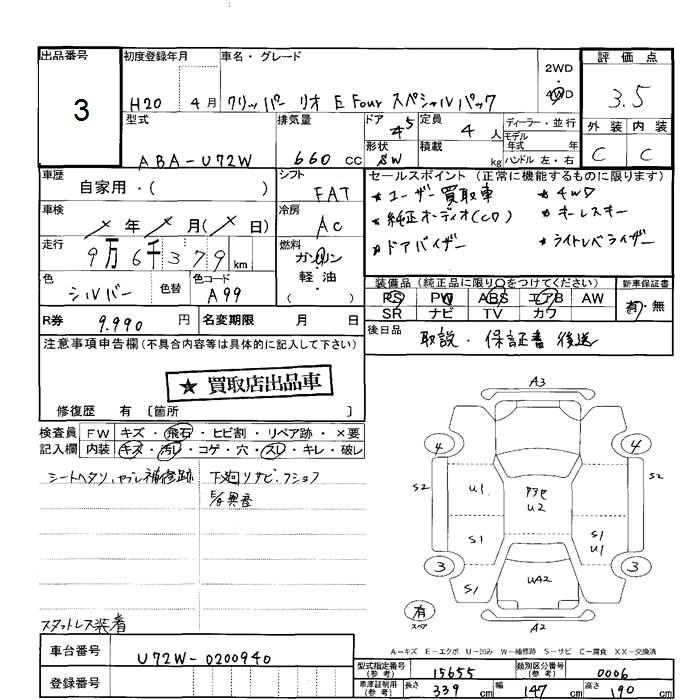 出品番号 初度登録年月 車名・グレード 2WD・4WD 評価点
3 H20 4月 クリッパー リオ E Four スペシャルパック 3.5
型式 排気量 ドア 定員 ディーラー・並行 外装 内装
ABA-U72W 660 CC 45 4人 モデル年式 年 C C
形状 SW 積載 kg ハンドル 左・右
車歴 シフト セールスポイント (正常に機能するものに限ります)
自家用・( ) FAT ★ユーザー買取車 ★4WD
車検 冷房 ★純正オーディオ(CD) ★キーレスキー
年 月( 日) AC ★ドアバイザー ★ライトレベライザー
走行 燃料
9万6千379km ガソリン
軽・油
( )
色 色替 色コード 装備品 (純正品に限り○をつけてください) 新車保証書
シルバー A99 PS PW ABS エアB AW 有・無
SR ナビ TV カワ
R券 9.990円 名変期限 月 日 後日品 取説・保証書 後送
注意事項申告欄 (不具合内容等は具体的に記入して下さい)
★買取店出品車
修復歴 有 〔箇所 〕
検査員 FW キズ・飛石・ヒビ割・リペア跡・×要
記入欄 内装 キズ・汚レ・コゲ・穴・スレ・キレ・破レ
シートヘタリ、ヤブレ補修跡 下廻リサビ・フショク
E/G異音
スタットレス装着
A3
4 4
S2 S2
U1 アタマ U2
S1 S1 U1
3 3
S1 UA2
有 スペア
A2
A-キズ E-エクボ U-凹み W-補修跡 S-サビ C-腐食 XX-交換済
車台番号 U72W-0200940
登録番号
型式指定番号(参考) 15655 類別区分番号(参考) 0006
車庫証明用(参考) 長さ 339cm 幅 147cm 高さ 190cm